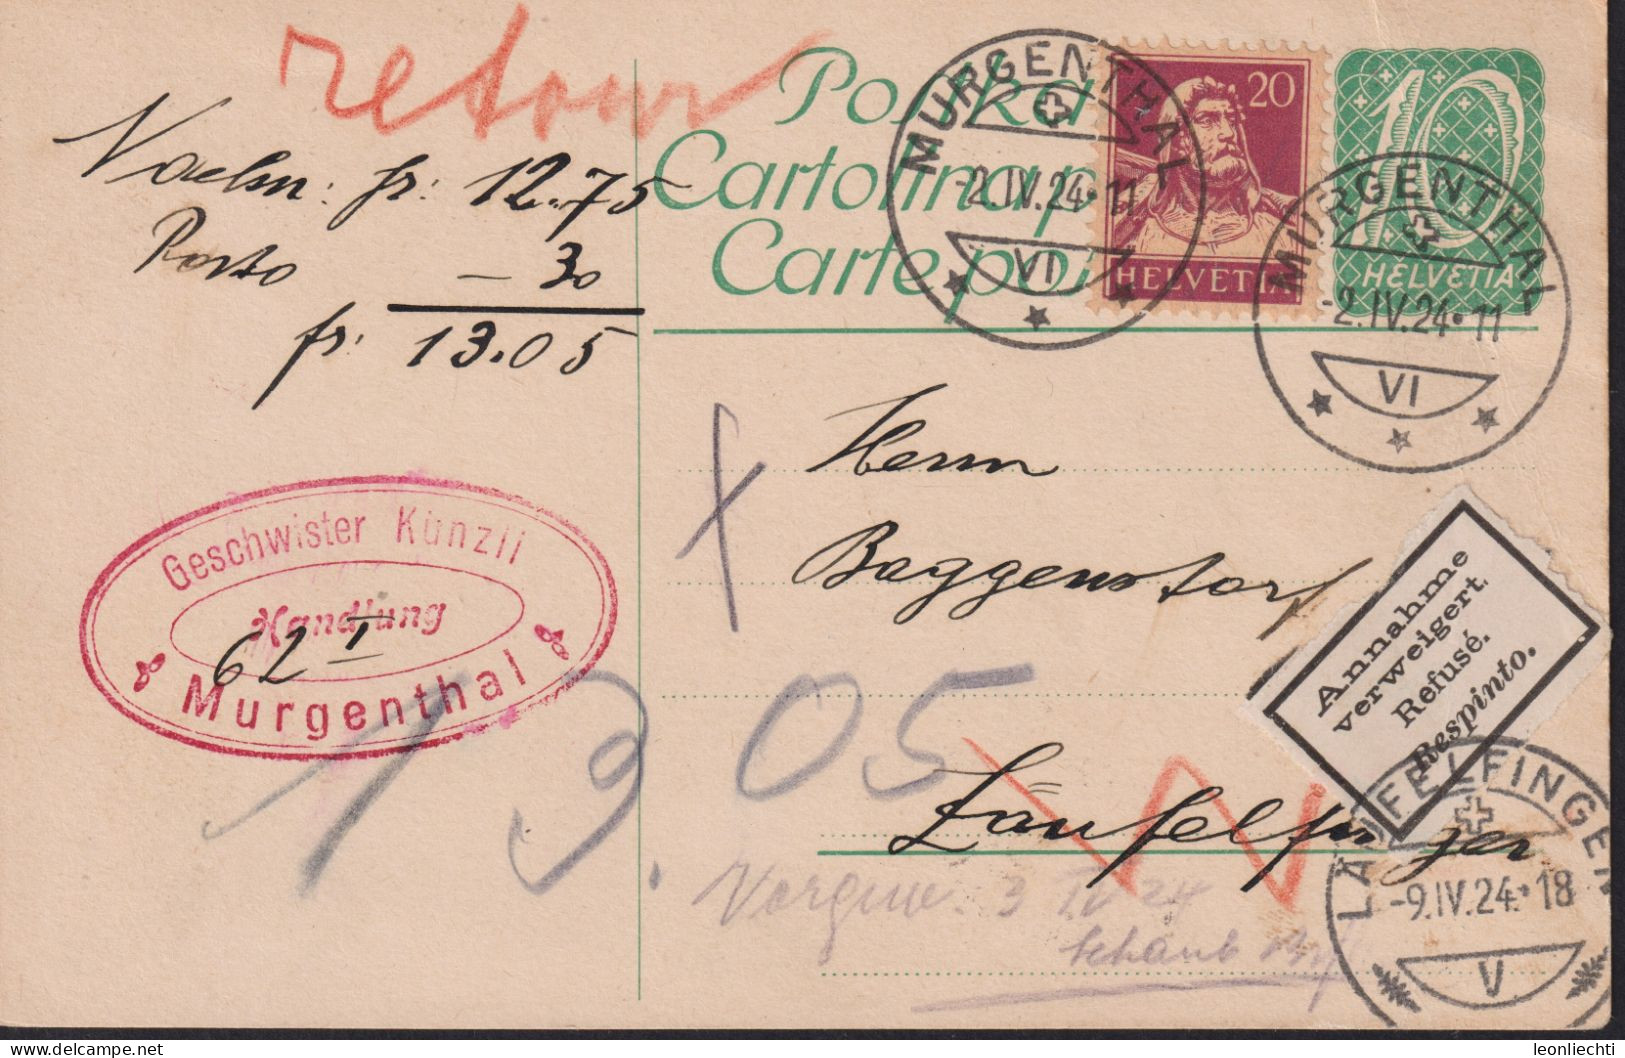 retour
Postka
Cartolinap
Carte po
20
HELVETIA
10
HELVETIA
MURGENTHAL
-2.IV.24•11
VI
MURGENTHAL
-2.IV.24•11
VI
fr: 12.75
Porto - 30
fr: 13.05
Geschwister Künzli
Handlung
62 I
Murgenthal
Herrn
Baggenstorf
Annahme
verweigert
Refusé.
Respinto.
13.05
Läufelfingen
LÄUFELFINGEN
-9.IV.24•18
V
3 IV 24
Schaub
leonliechti
delcampe.net